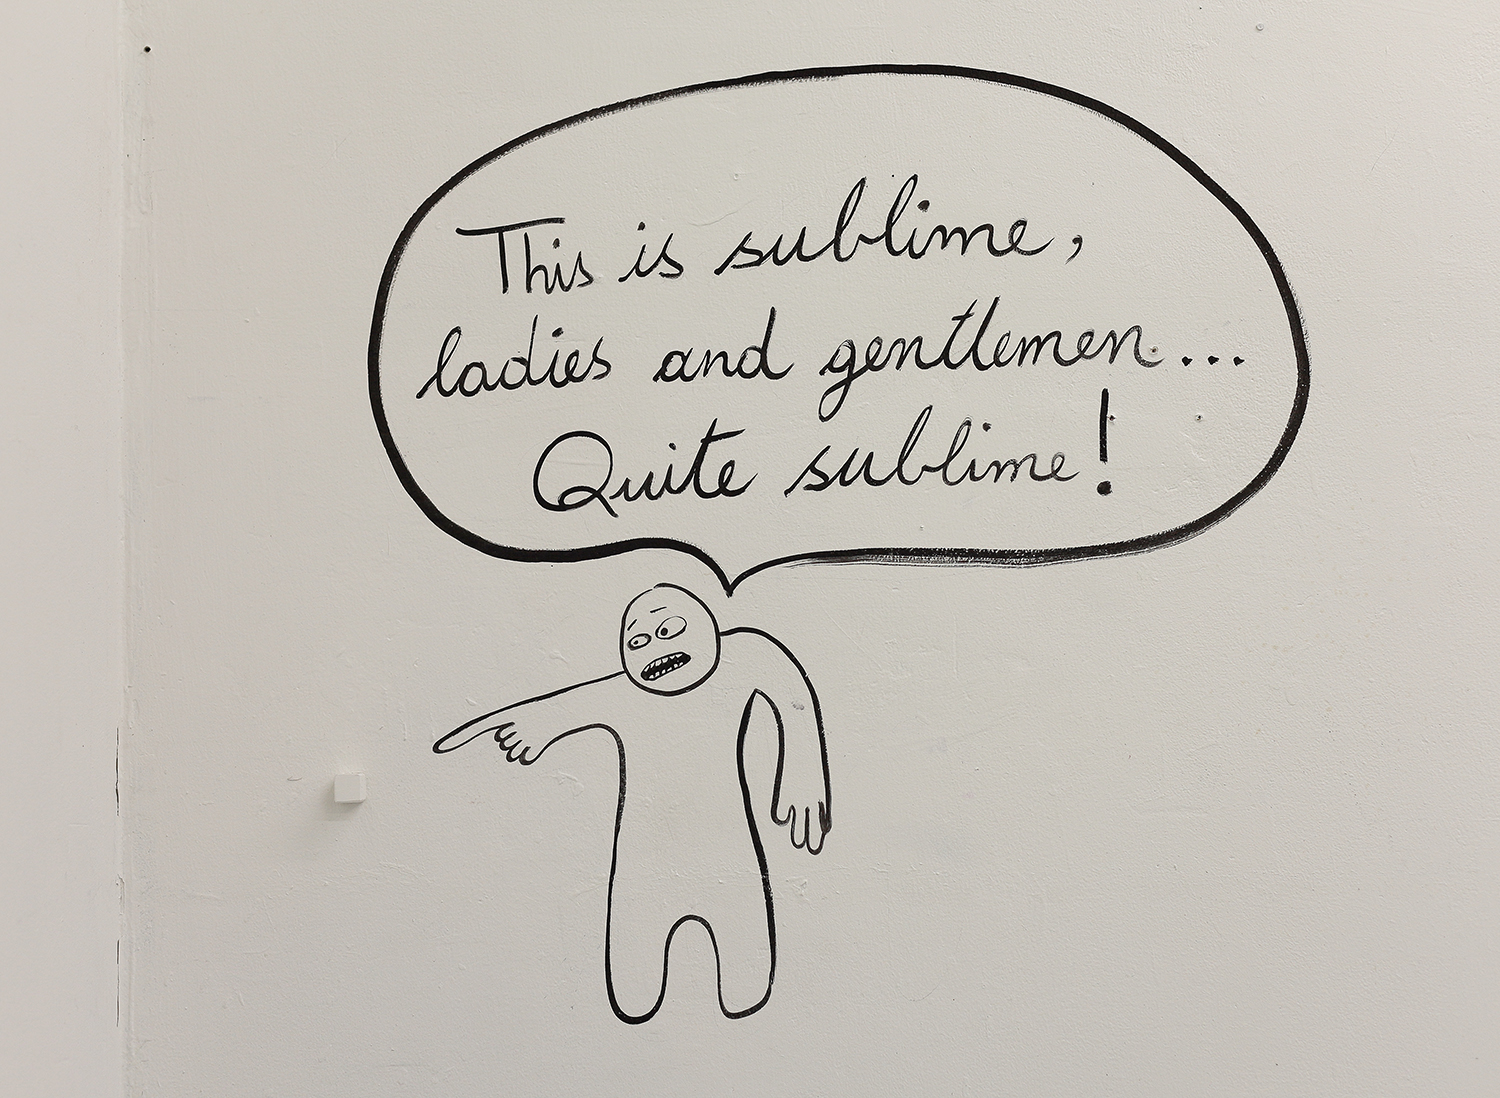 This is sublime,
ladies and gentlemen...
Quite sublime!